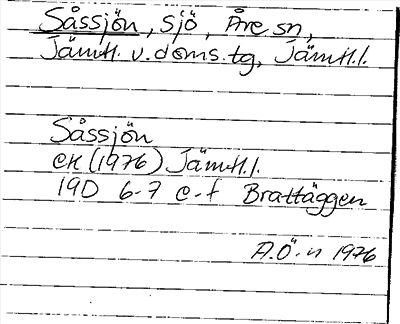 Såssjön, sjö, Åre sn,
Jämtl. v. doms. tg, Jämtl. l.
Såssjön
ek (1976) Jämtl. l.
19D 6-7 e-f Brattäggen
A.Ö-n 1976